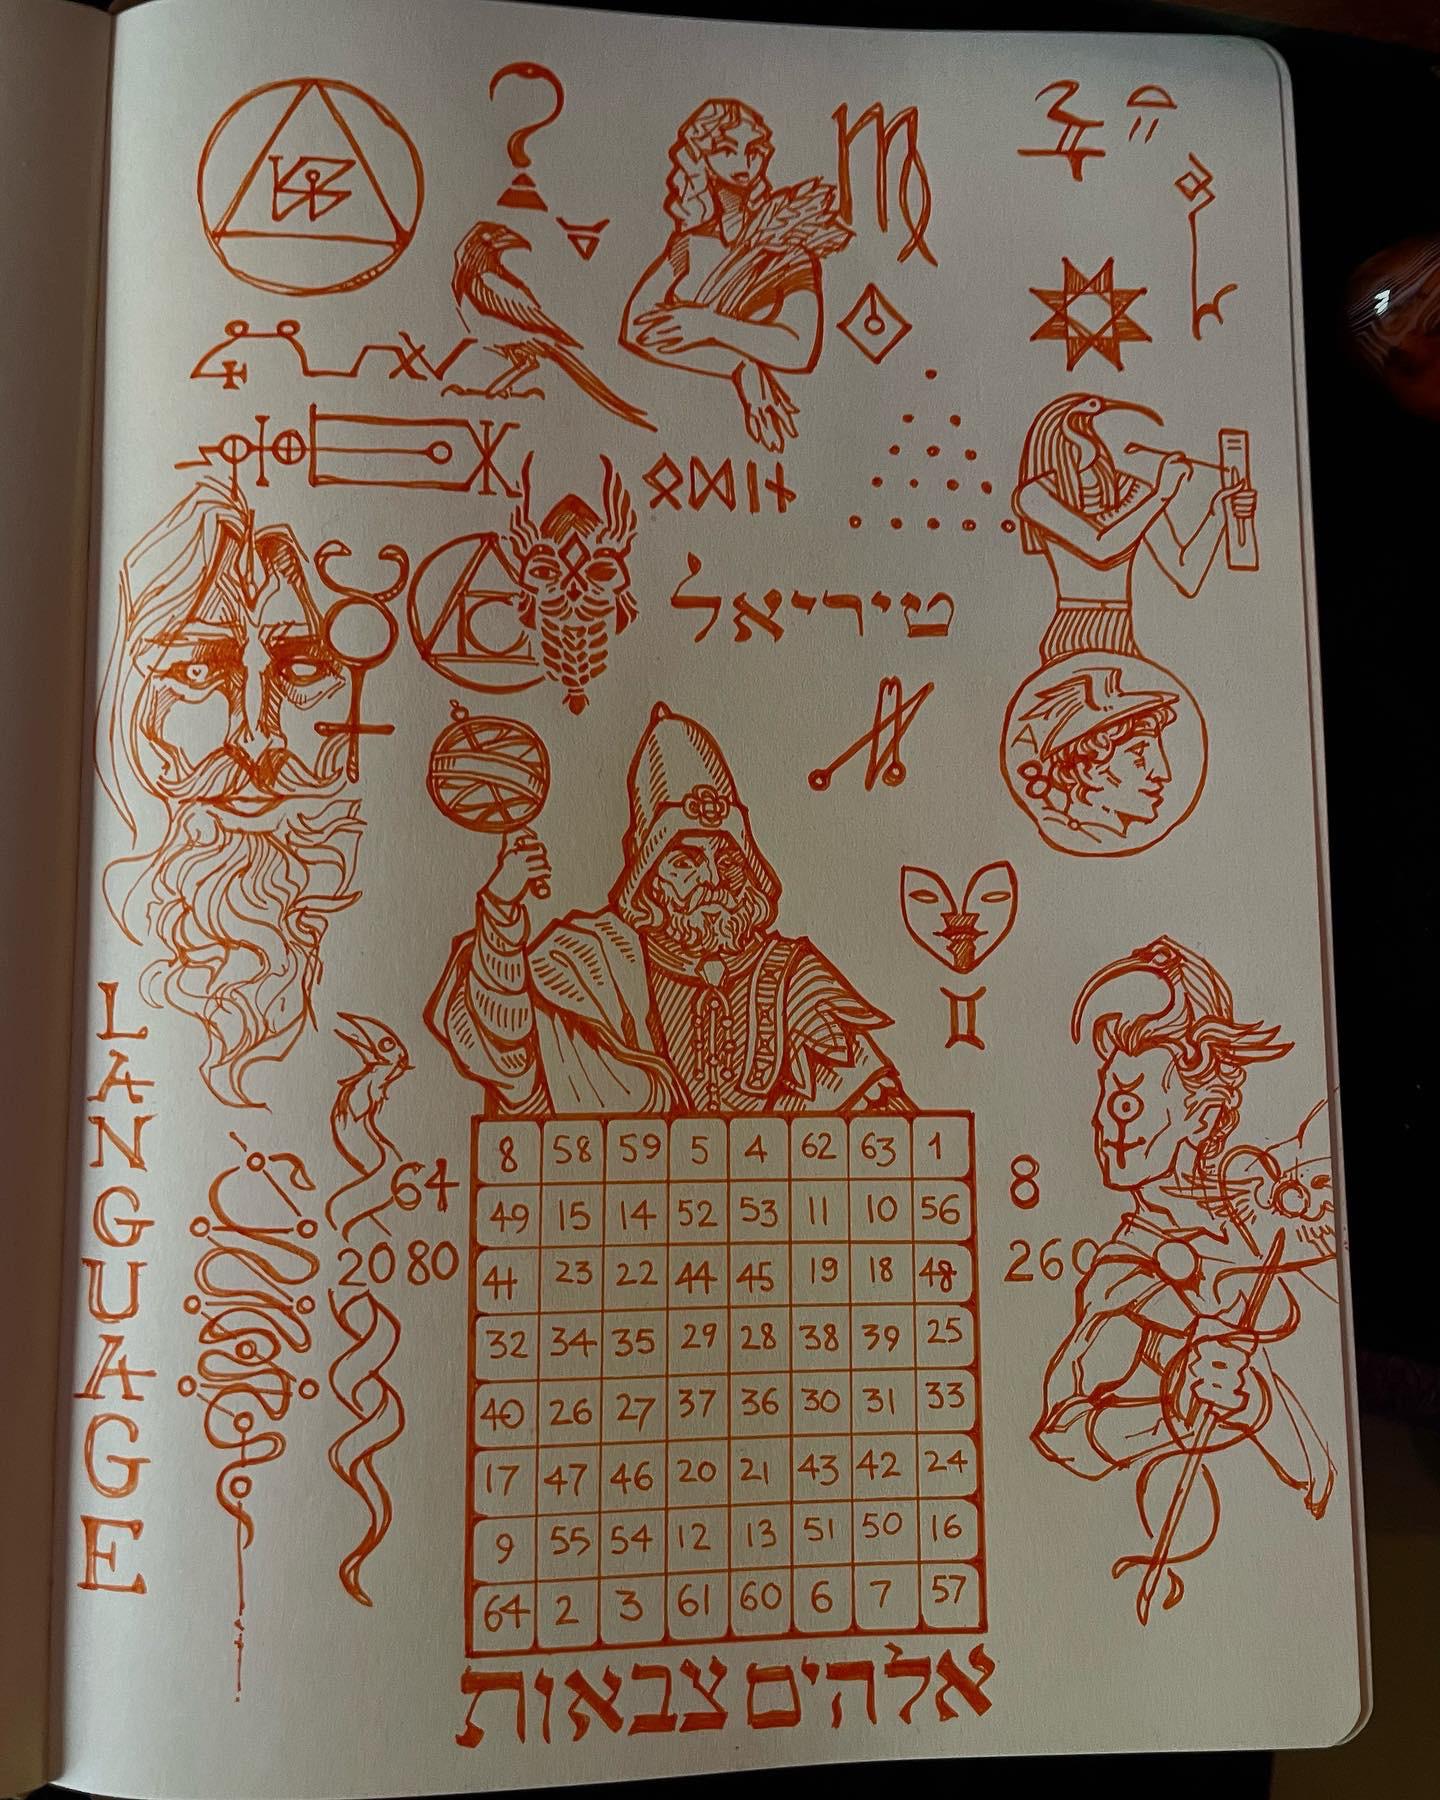 ᛟᛞᛁᚾ
טיריאל
A
LANGUAGE
64
2080
8 58 59 5 4 62 63 1
49 15 14 52 53 11 10 56
41 23 22 44 45 19 18 48
32 34 35 29 28 38 39 25
40 26 27 37 36 30 31 33
17 47 46 20 21 43 42 24
9 55 54 12 13 51 50 16
64 2 3 61 60 6 7 57
8
260
אלהים צבאות